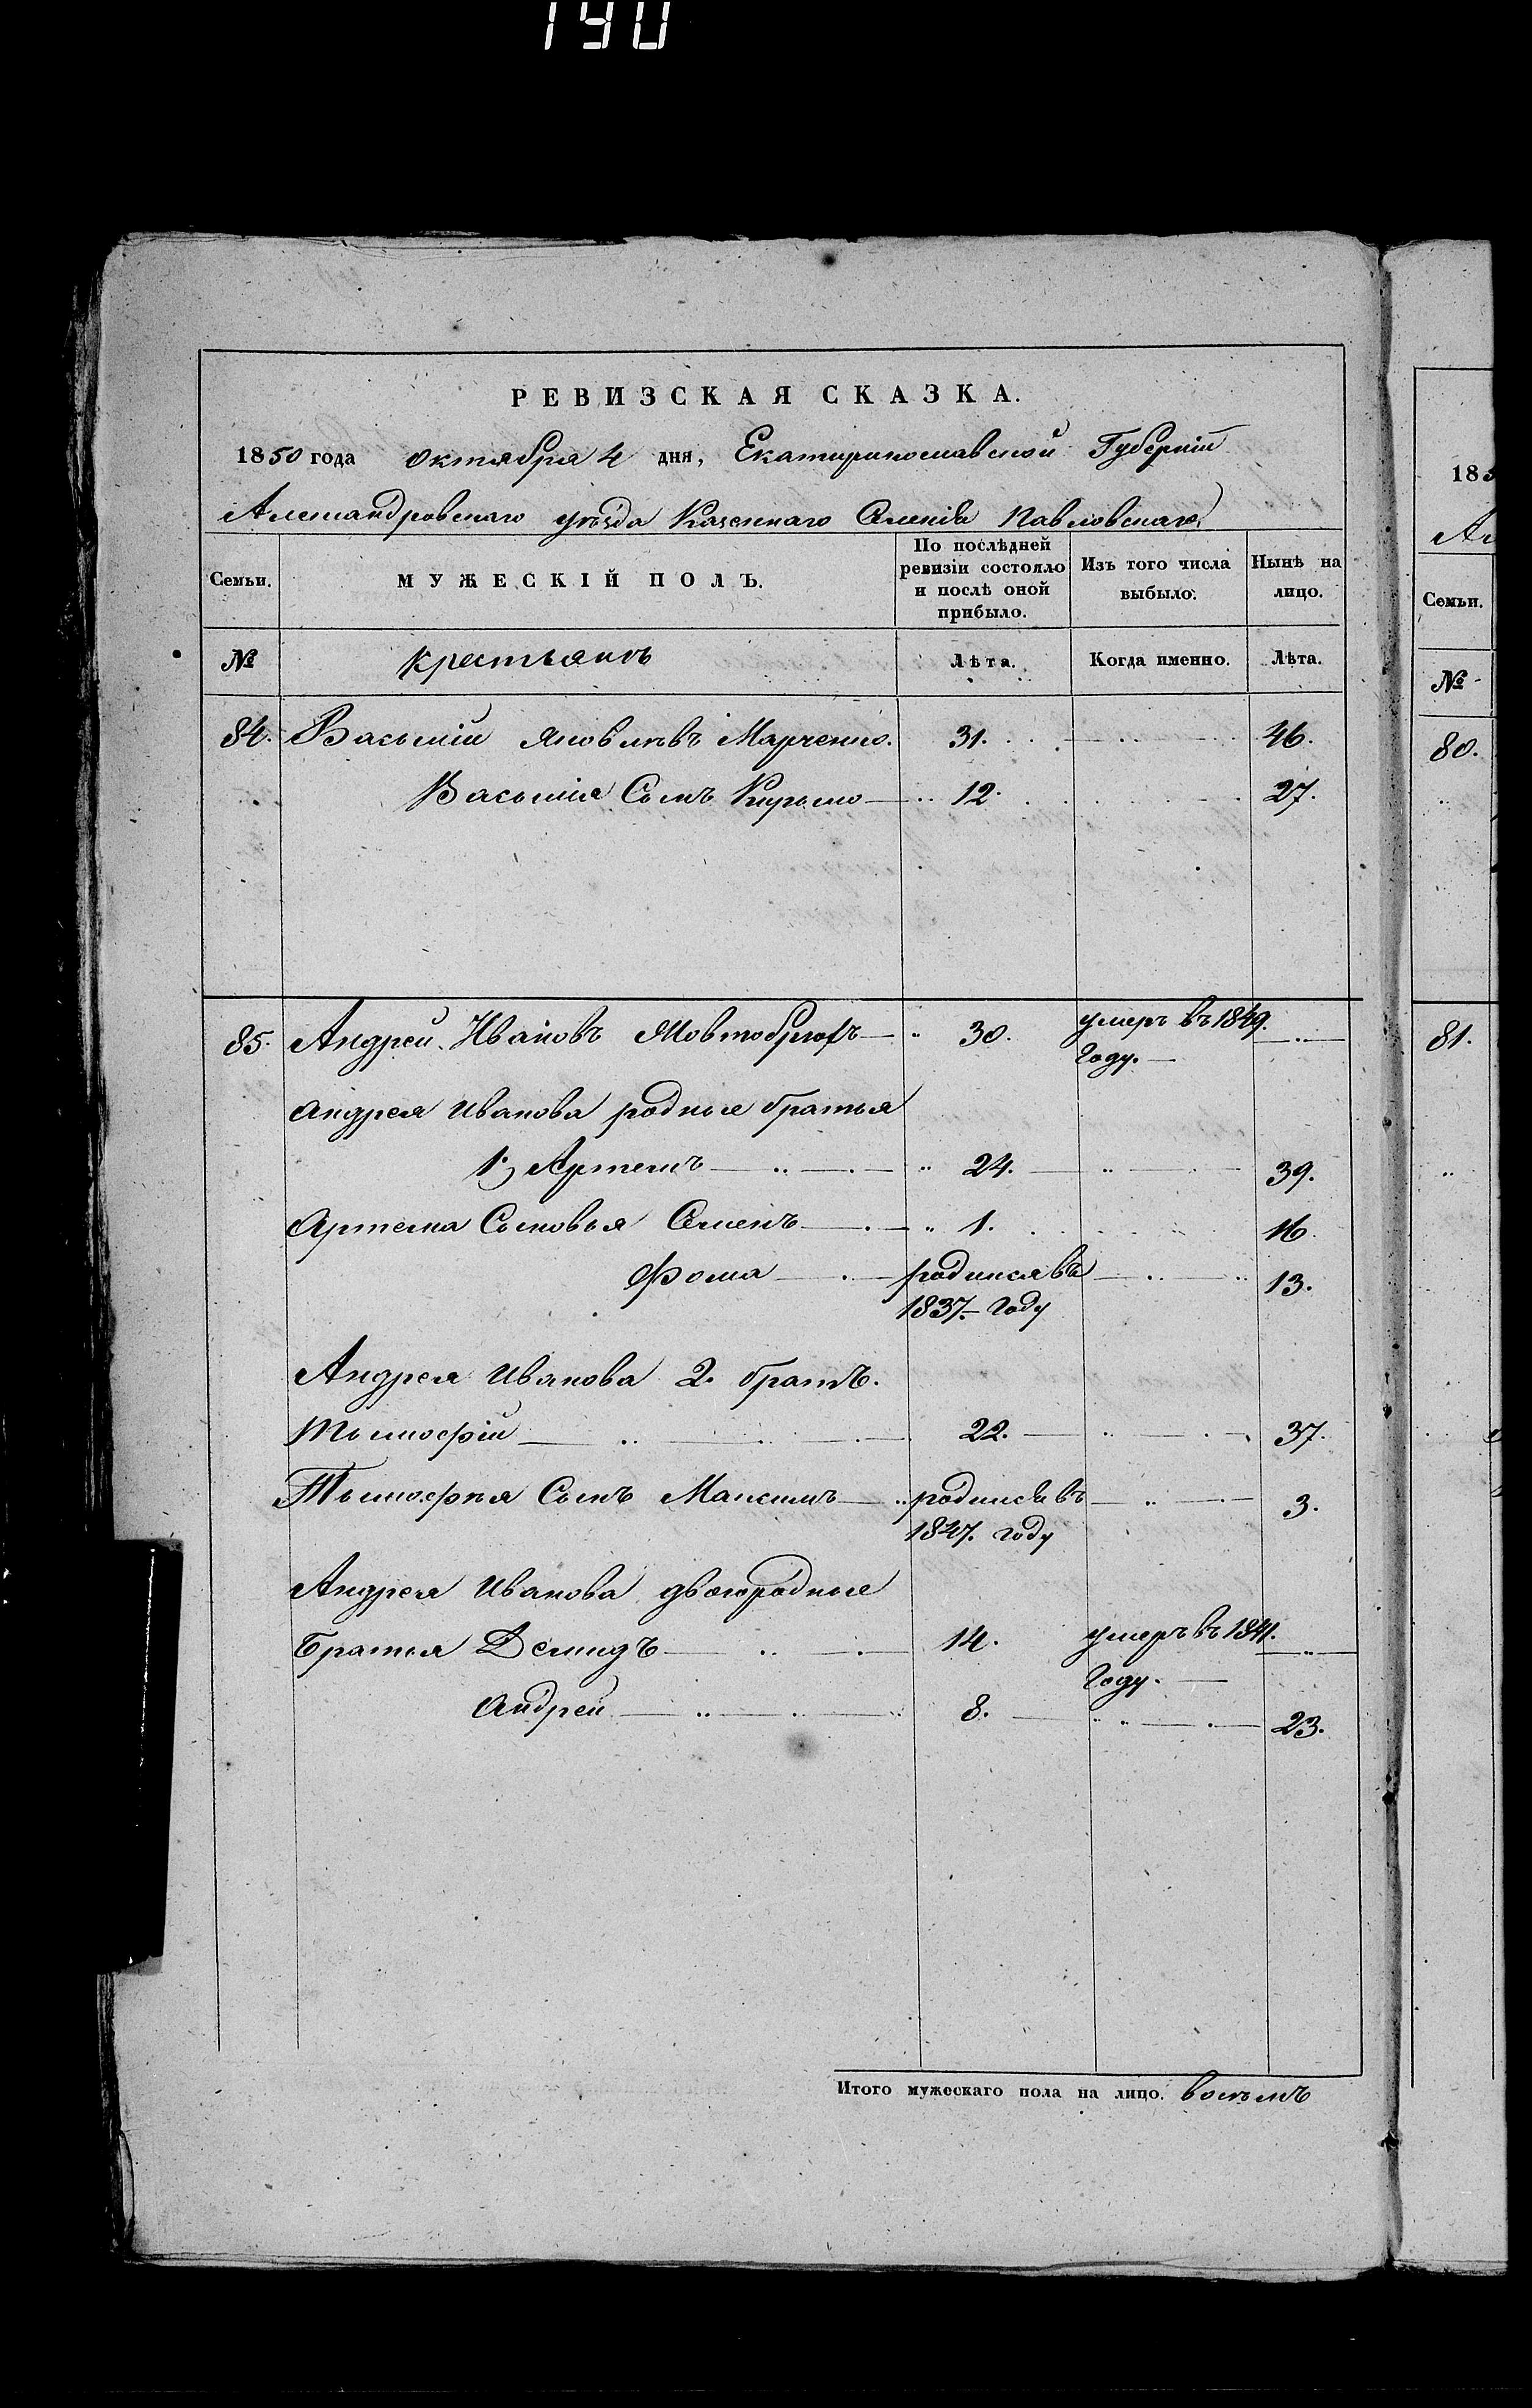 190
РЕВИЗСКАЯ СКАЗКА.
1850 года октября 4 дня, Екатеринославской Губерніи
Александровскаго уѣзда Казеннаго Селенія Павловскаго
Семьи. МУЖЕСКІЙ ПОЛЪ. По послѣдней ревизіи состояло и послѣ оной прибыло. Изъ того числа выбыло. Нынѣ на лицо.
№ крестьянъ Лѣта. Когда именно. Лѣта.
84. Василій Яковлевъ Марченко. 31. 46.
Василія Сынъ Кирило 12. 27.
85. Андрей Ивановъ 30. умеръ въ 1849.
году.
Андрея Иванова родные братья
1й Артемъ 24. 39.
Артема Сыновья Семенъ 1. 16.
Фома родился въ 13.
1837. году
Андрея Иванова 2. братъ.
Тымофій 22. 37.
Тымофея Сынъ Максимъ родился въ 3.
1847. году
Андрея Иванова двоюродные
братья Демидъ 14. умеръ въ 1841.
году.
Андрей 8. 23.
Итого мужескаго пола на лицо. восемъ
185
Ал
Семьи.
№
80.
81.